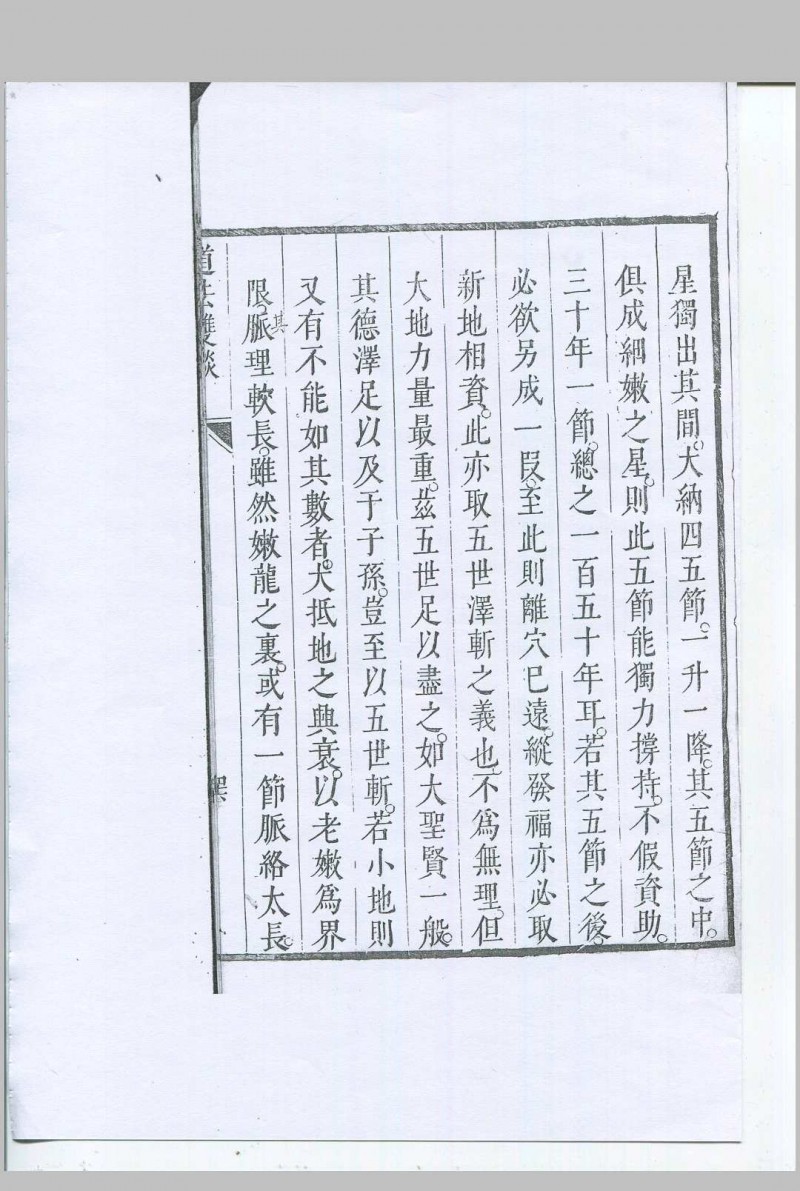 星獨出其間。大納四五節。一升一降。其五節之中。
俱成細嫩之星。則此五節能獨力撐持。不假資助。
三十年一節。總之一百五十年耳。若其五節之後。
必欲另成一段。至此則離穴已遠。縱發福亦必取
新地相資。此亦取五世澤斬之義也。不為無理。但
大地力量最重。茲五世足以盡之。如大聖賢一般。
其德澤足以及于子孫。豈至以五世斬。若小地則
又有不能如其數者。大抵地之興衰。以老嫩為界
限。其脈理軟長。雖然嫩龍之裏。或有一節脈絡太長。
道法雙談